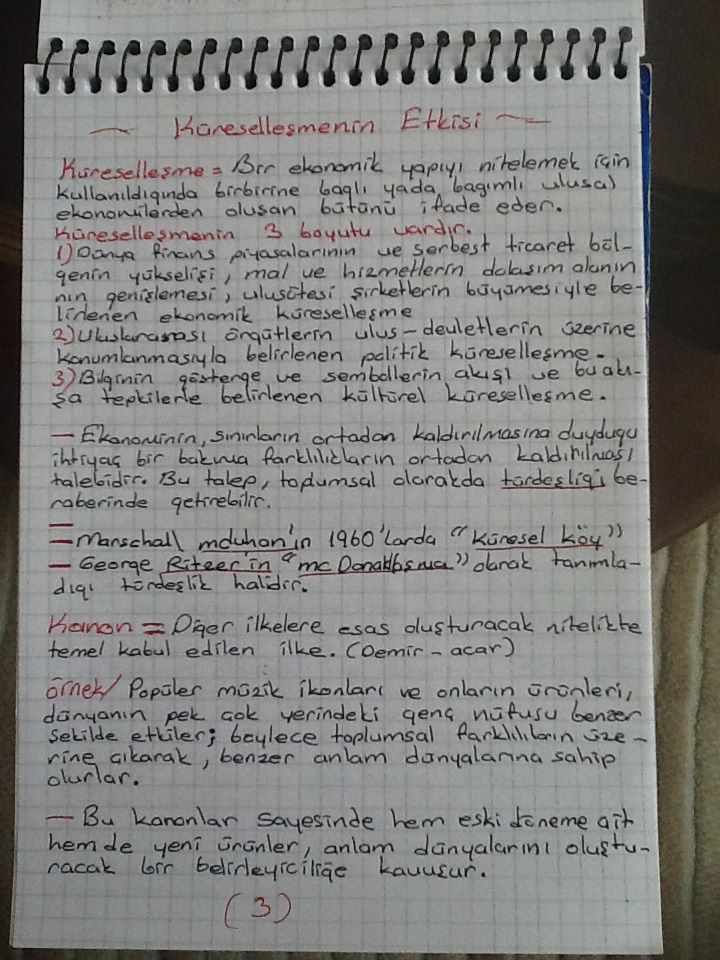 Küreselleşmenin Etkisi
Küreselleşme = Bir ekonomik yapıyı nitelemek için
kullanıldığında birbirine bağlı yada bağımlı ulusal
ekonomilerden oluşan bütünü ifade eder.
Küreselleşmenin 3 boyutu vardır.
1) Dünya finans piyasalarının ve serbest ticaret böl-
genin yükselişi, mal ve hizmetlerin dolaşım alanın
nın genişlemesi, ulusötesi şirketlerin büyümesiyle be-
lirlenen ekonomik küreselleşme
2) Uluslararası örgütlerin ulus-devletlerin üzerine
konumlanmasıyla belirlenen politik küreselleşme.
3) Bilginin gösterge ve sembollerin akışı ve bu akı-
şa tepkilerle belirlenen kültürel küreselleşme.
— Ekonominin, sınırların ortadan kaldırılmasına duyduğu
ihtiyaç bir bakıma farklılıkların ortadan kaldırılması
talebidir. Bu talep, toplumsal olarakda türdeşliği be-
raberinde getirebilir.
— Marschall mcluhan'ın 1960'larda "Küresel Köy"
— George Ritzer'in "mc Donaldlaşma" olarak tanımla-
dığı türdeşlik halidir.
Kanon = Diğer ilkelere esas oluşturacak nitelikte
temel kabul edilen ilke. (Demir-acar)
örnek/ Popüler müzik ikonları ve onların ürünleri,
dünyanın pek çok yerindeki genç nüfusu benzer
şekilde etkiler; böylece toplumsal farklılıkların üze-
rine çıkarak, benzer anlam dünyalarına sahip
olurlar.
— Bu kanonlar sayesinde hem eski döneme ait
hemde yeni ürünler, anlam dünyalarını oluştu-
racak bir belirleyiciliğe kavuşur.
(3)